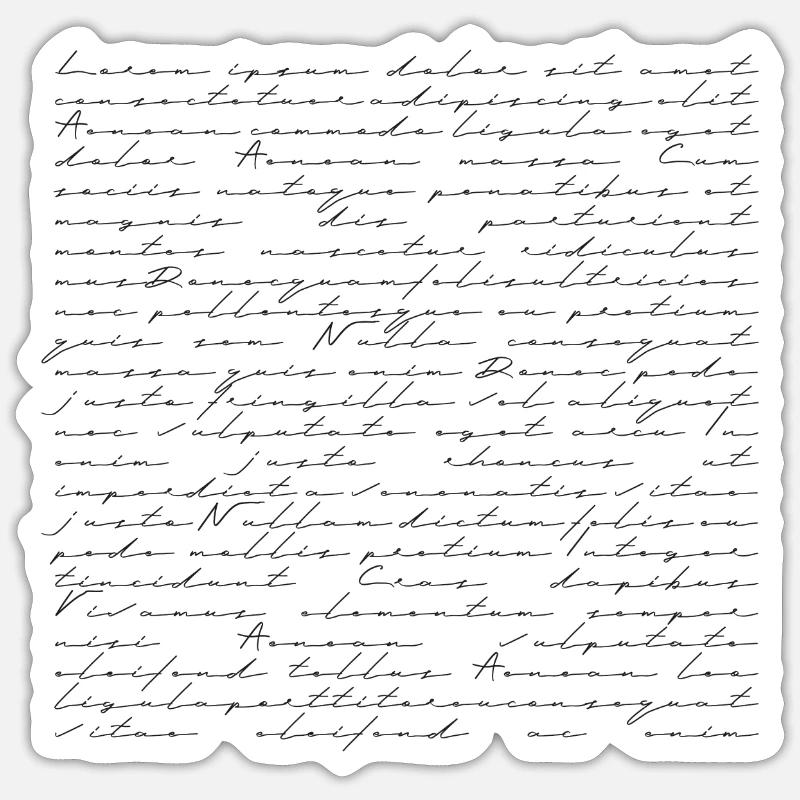 Lorem ipsum dolor sit amet
consectetuer adipiscing elit
Aenean commodo ligula eget
dolor Aenean massa Cum
sociis natoque penatibus et
magnis dis parturient
montes nascetur ridiculus
mus Donec quam felis ultricies
nec pellentesque eu pretium
quis sem Nulla consequat
massa quis enim Donec pede
justo fringilla vel aliquet
nec vulputate eget arcu In
enim justo rhoncus ut
imperdiet a venenatis vitae
justo Nullam dictum felis eu
pede mollis pretium Integer
tincidunt Cras dapibus
Vivamus elementum semper
nisi Aenean vulputate
eleifend tellus Aenean leo
ligula porttitor eu consequat
vitae eleifend ac enim